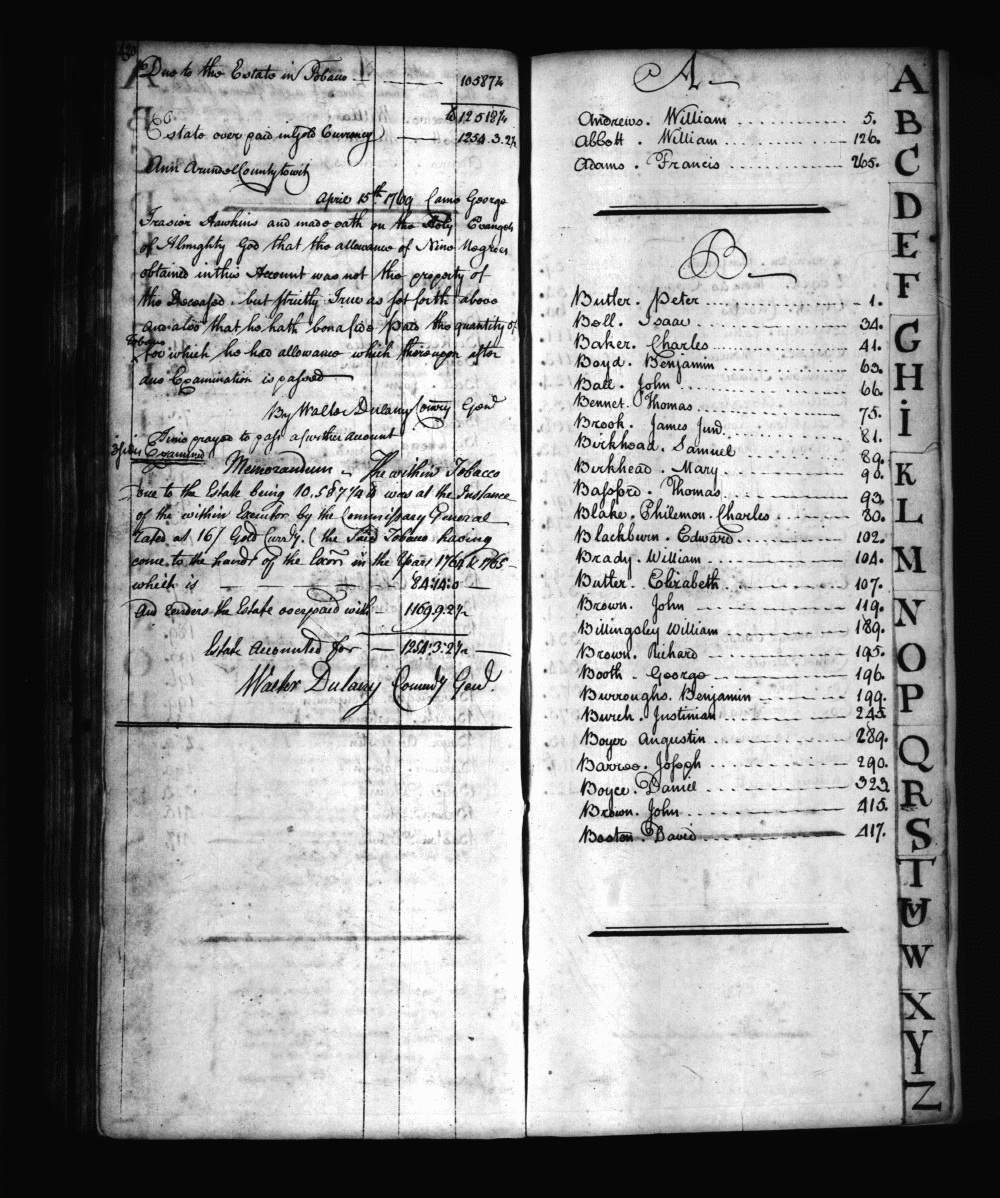 Due to the Estate in Tobacco 10587¼
Estate over paid in Gold Currency 1254.3.2½
Ann Arundel County towit
April 15th 1769 Came George
Frasier Hawkins and made oath on the Holy Evangels
of Almighty God that the allowance of Nine Negroes
obtained in this Account was not the property of
the Deceased. but strictly True as set forth above
and also that he hath bona fide Paid the quantity of
Tobacco
for which he had allowance which thereupon after
due Examination is passed
By Walter Dulany Comry Genl
Time prayed to pass a further Account
Examined
Memorandum The within Tobacco
due to the Estate being 10.587¼ was at the Instance
of the within Executor by the Commissary General
rated at 16/ Gold Curr'y. (the Said Tobacco having
come to the hands of the Exor in the Years 1764 & 1765
which is 84.14.0
and renders the Estate overpaid with 1169.9.2½
Estate Accounted for 1254.3.2½
Walter Dulany Comry Genl.
A
Andrews. William 5.
Abbott. William 126.
Adams. Francis 265.
B
Butler. Peter 1.
Bell. Isaac 34.
Baker. Charles 41.
Boyd. Benjamin 63.
Ball. John 66.
Bennet. Thomas 75.
Brook. James Junr. 81.
Birkhead. Samuel 89.
Birkhead. Mary 90.
Bassford. Thomas 93.
Blake. Philemon. Charles 80.
Blackburn. Edward 102.
Brady. William 104.
Butler. Elizabeth 107.
Brown. John 119.
Billingsley William 189.
Brown. Richard 195.
Booth. George 196.
Burroughs. Benjamin 199.
Burch. Justinian 245.
Boyer Augustin 289.
Barroo. Joseph 290.
Boyce. Daniel 323.
Brown. John 415.
Boston. David 417.
A
B
C
D
E
F
G
H
I
K
L
M
N
O
P
Q
R
S
T
U
W
X
Y
Z